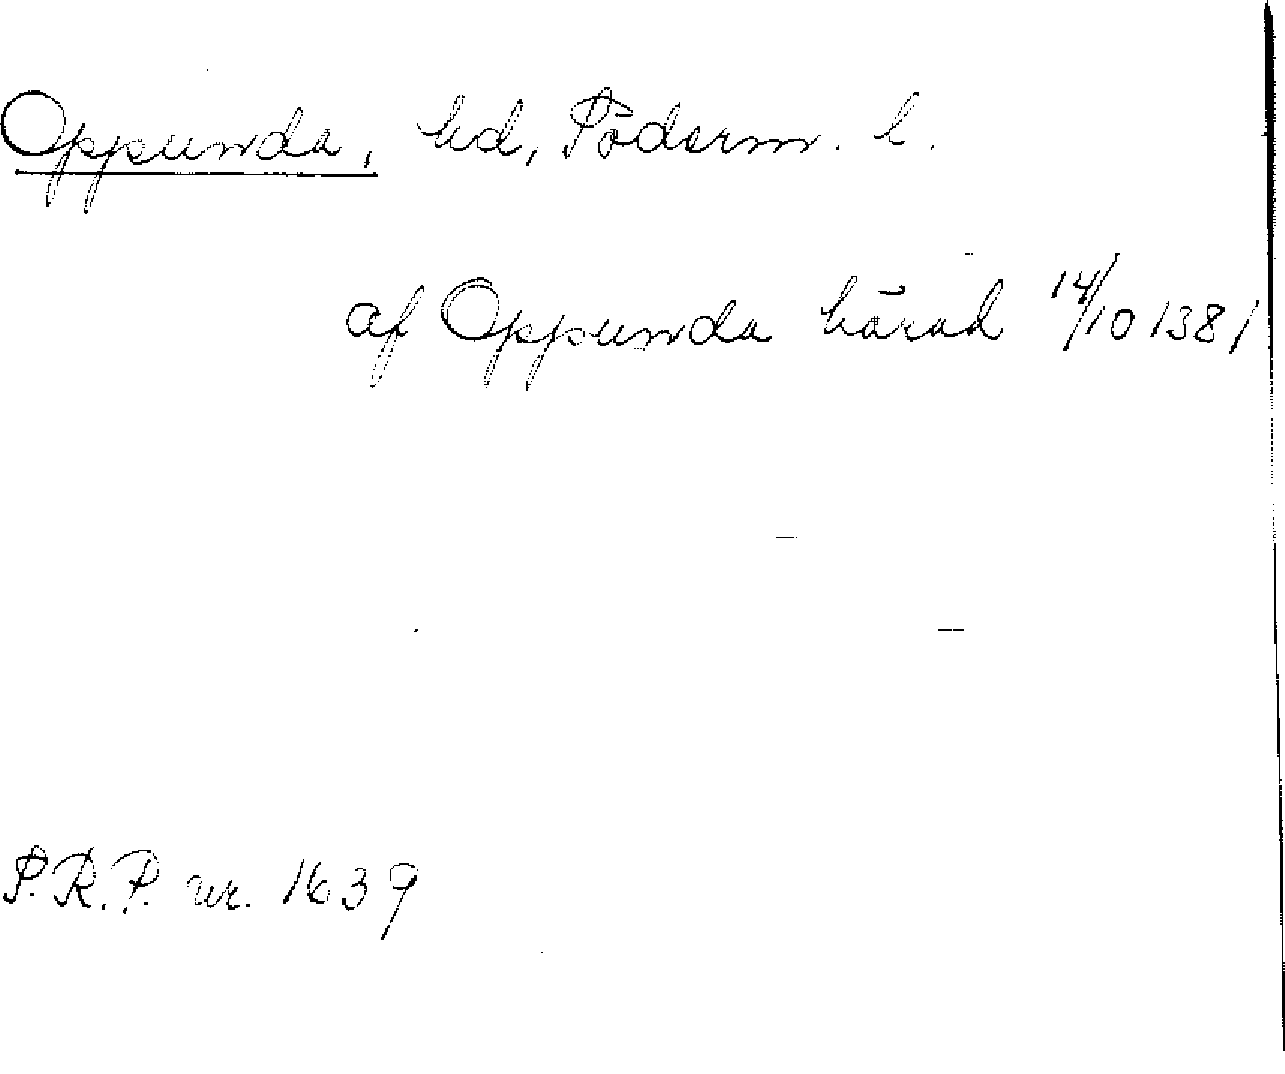 Oppunda, hd, Söderm. l.
af Oppunda härad 14/10 1381
S.R.P. nr. 1639